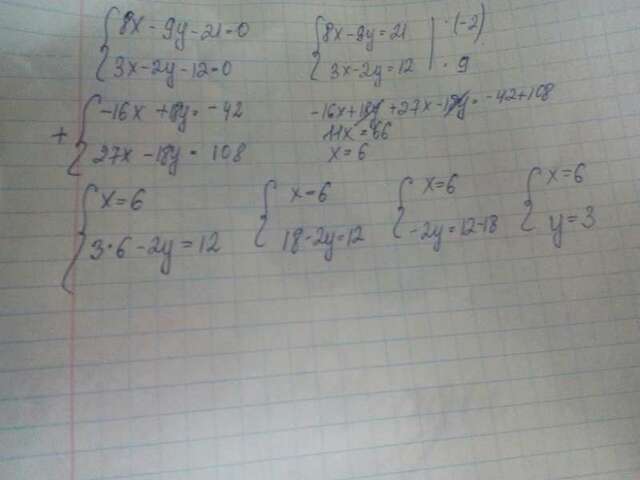 { 8x - 9y - 21 = 0
{ 3x - 2y - 12 = 0
{ 8x - 9y = 21 | · (-2)
{ 3x - 2y = 12 | · 9
+ { -16x + 18y = -42
{ 27x - 18y = 108
-16x + 18y + 27x - 18y = -42 + 108
11x = 66
x = 6
{ x = 6
{ 3·6 - 2y = 12
{ x = 6
{ 18 - 2y = 12
{ x = 6
{ -2y = 12 - 18
{ x = 6
{ y = 3